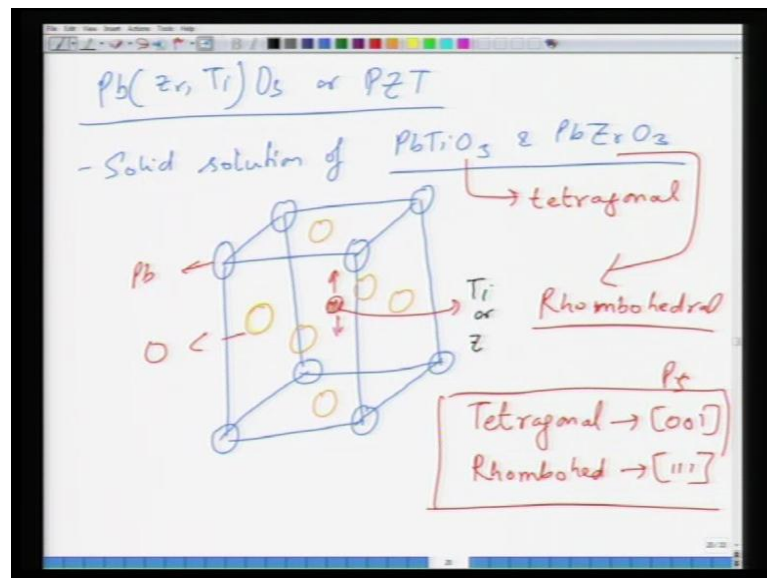 File Edit View Insert Actions Tools Help
Pb(Zr, Ti)O3 or PZT
- Solid solution of PbTiO3 & PbZrO3
tetragonal
Rhombohedral
Pb
O
Ti
or
Z
Ps
Tetragonal → [001]
Rhombohed → [111]